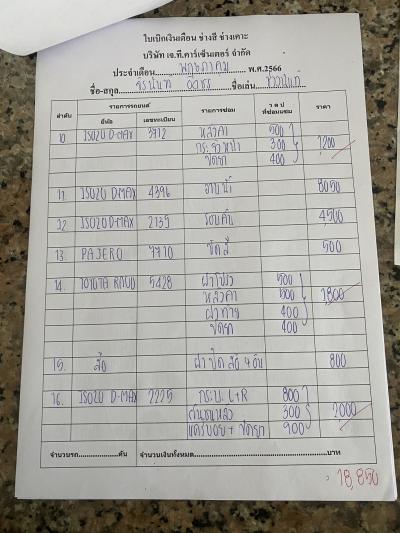 ใบเบิกเงินเดือน ช่างสี ช่างเคาะ
บริษัท เจ.ที.คาร์เซ็นเตอร์ จำกัด
ประจำเดือน พฤษภาคม พ.ศ.2566
ชื่อ-สกุล ชื่อเล่น
ลำดับ รายการรถยนต์ รายการซ่อม ว ด ป ที่ซ่อมแซม ราคา
ยี่ห้อ เลขทะเบียน
10. ISUZU D-MAX 3912 หลังคา 500
กระจังหน้า 300 1200
ขัดยา 400
11. ISUZU D-MAX 4396 8050
12. ISUZU D-MAX 2135 รอบคัน 4500
13. PAJERO 7710 ขัดสี 500
14. TOYOTA 5428 ฝาโปรง 500
หลังคา 500 1,800
ฝาท้าย 400
ขัดยา 400
15. ล้อ ฝาปิดล้อ 4 อัน 800
16. ISUZU D-MAX 2225 กระบะ L+R 800
300 2000
+ ขัดยา 900
จำนวนรถ คัน จำนวนเงินทั้งหมด บาท
18,850